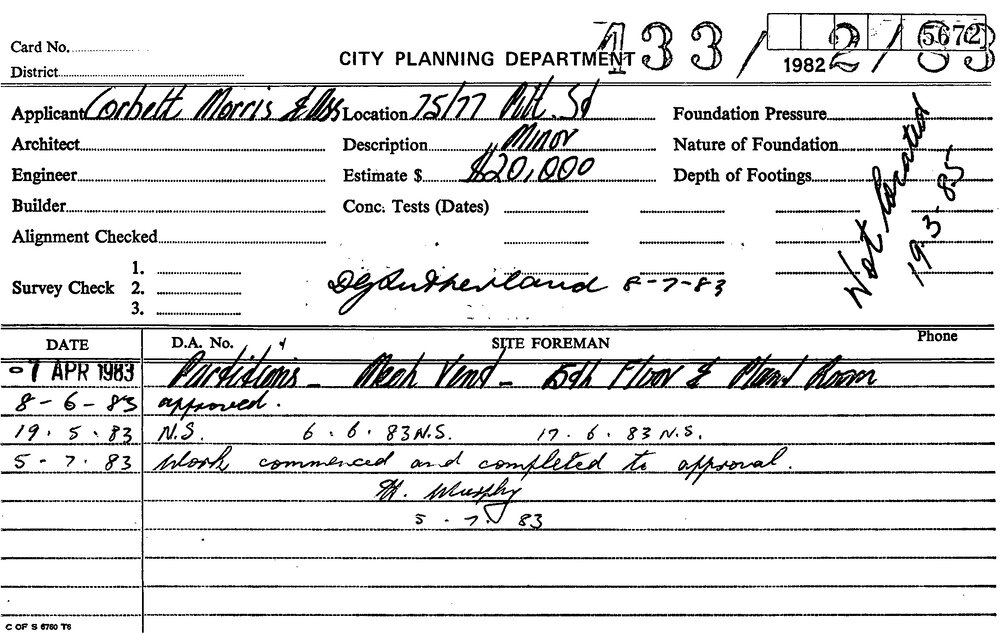 Card No.
District
CITY PLANNING DEPARTMENT
133/2/83
5672
1982
Applicant Corbett Morris & Ass Location 75/77 Pitt. St Foundation Pressure
Architect Description Minor Nature of Foundation
Engineer Estimate $ $20,000 Depth of Footings
Builder Conc. Tests (Dates)
Alignment Checked
Not Located
19.3.85
Survey Check 1.
2.
3.
DGSutherland 8-7-83
DATE D.A. No. SITE FOREMAN Phone
-7 APR 1983 Partitions - Mech Vent - 15th Floor & Plant Room
8-6-83 approved.
19.5.83 N.S. 6.6.83 N.S. 17.6.83 N.S.
5-7.83 Work commenced and completed to approval.
Murphy
5.7.83
C OF S 6760 T6